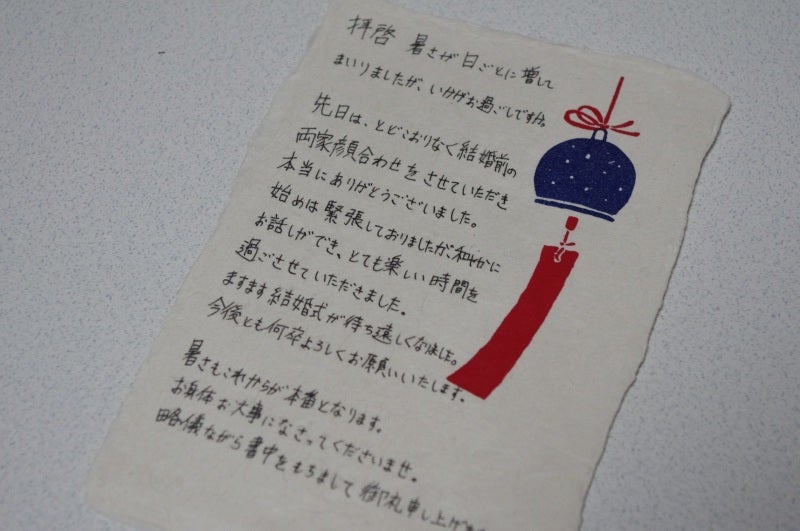 拝啓 暑さが日ごとに増して
まいりましたが、いかがお過ごしですか。
先日は、とどこおりなく結婚前の
両家顔合わせをさせていただき
本当にありがとうございました。
始めは緊張しておりましたが、和やかに
お話しができ、とても楽しい時間を
過ごさせていただきました。
ますます結婚式が待ち遠しくなりました。
今後とも何卒よろしくお願いいたします。
暑さもこれからが本番となります。
お身体お大事になさってくださいませ。
略儀ながら書中をもちまして御礼申し上げ